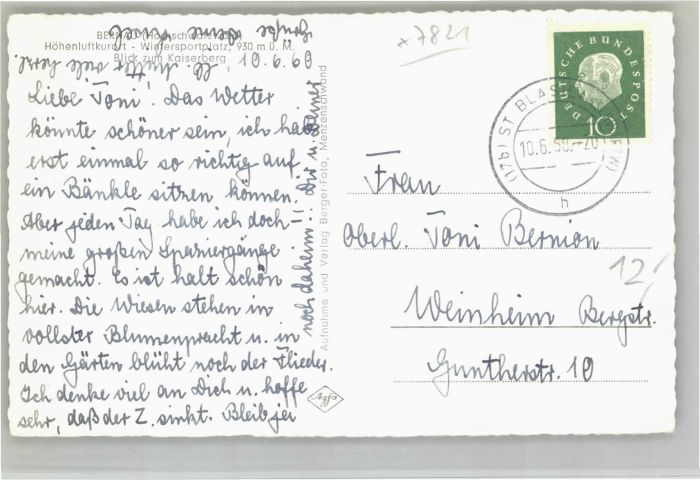 BERNAU (Hochschwarzwald)
Höhenluftkurort - Wintersportplatz, 930 m ü. M.
Blick zum Kaiserberg
10.6.60
Liebe Toni! Das Wetter
könnte schöner sein, ich hab
erst einmal so richtig auf
ein Bänkle sitzen können.
Aber jeden Tag habe ich doch
meine großen Spaziergänge
gemacht. Es ist halt schön
hier. Die Wiesen stehen in
vollster Blumenpracht u. in
den Gärten blüht noch der Flieder.
Ich denke viel an Dich u. hoffe
sehr, daß der Z. sinkt. Bleib jei
noch daheim!! Dir u. Deiner
Grüße
Aufnahme und Verlag Berger-Foto, Menzenschwand
Agfa
x7821
DEUTSCHE BUNDESPOST
10
(17b) ST BLAS
10.6.60.-20
h
Frau
Oberl. Toni Bernion
Weinheim Bergstr.
Guntherstr. 10
12,-